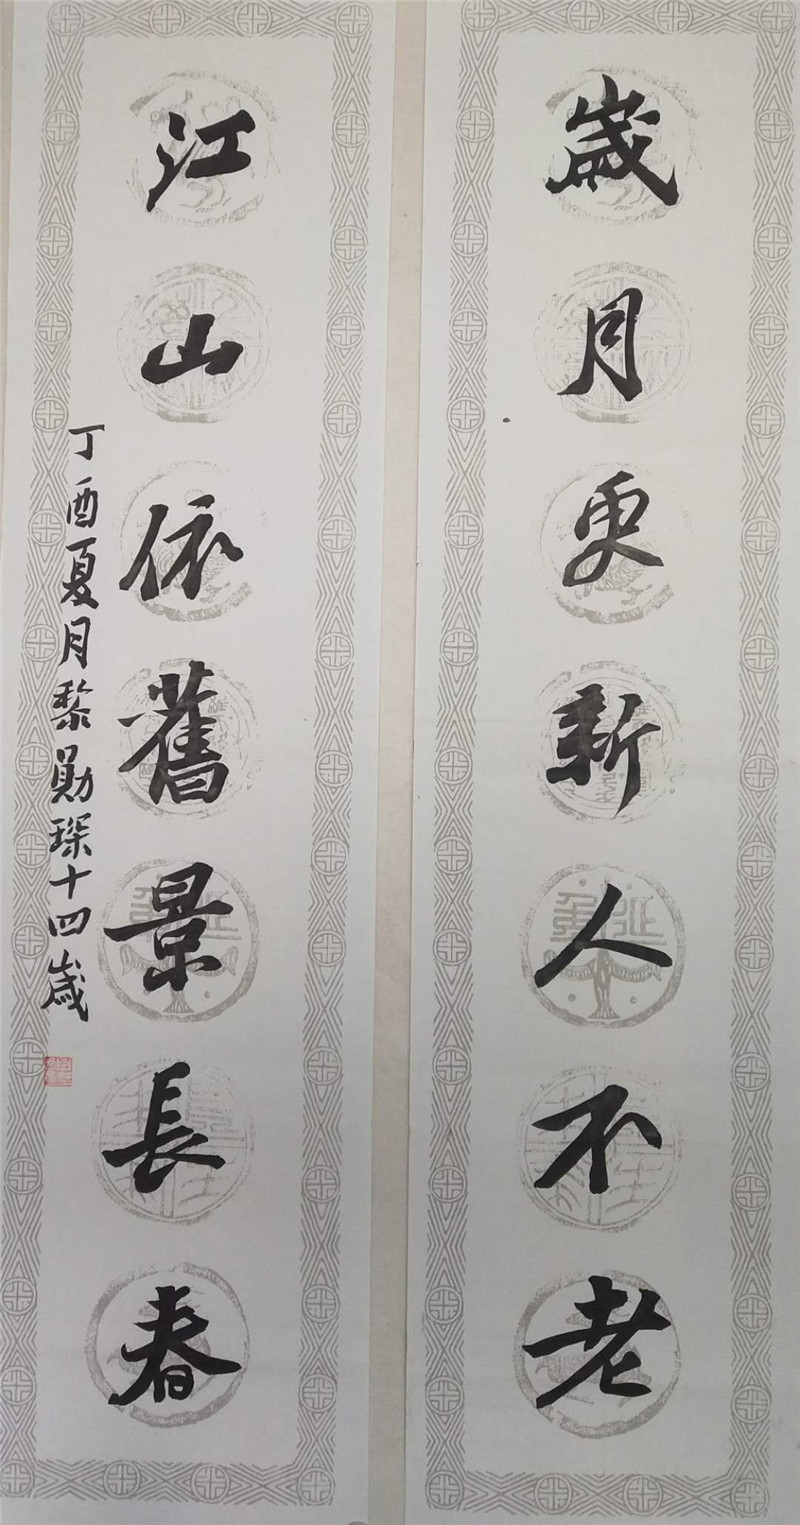 歲月更新人不老
江山依舊景長春
丁酉夏月黎勛琛十四歲